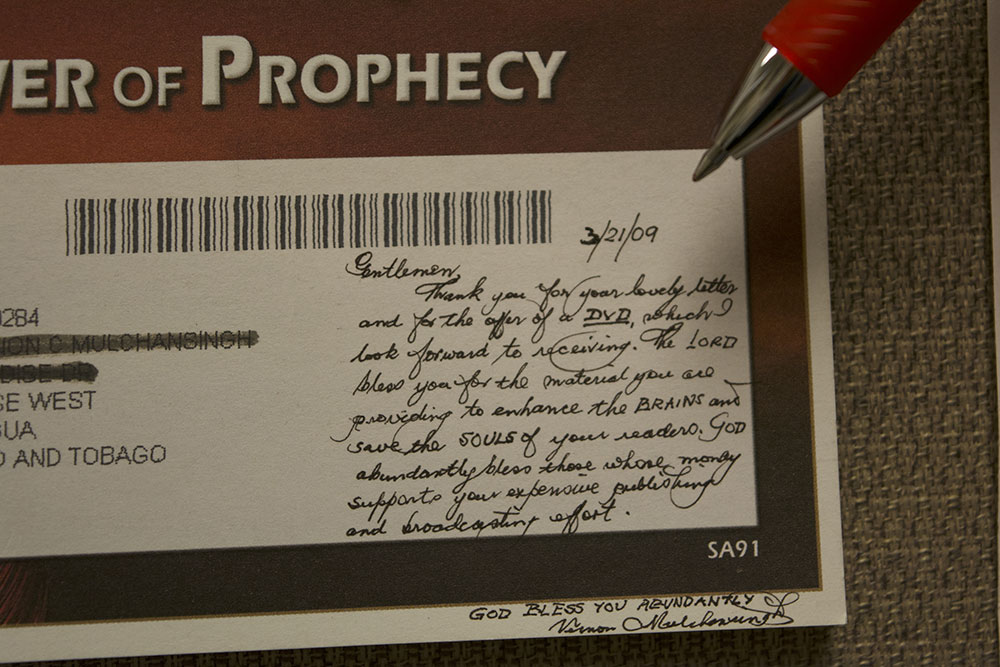 WER OF PROPHECY
3/21/09
Gentlemen,
Thank you for your lovely letter
and for the offer of a DVD, which I
look forward to receiving. The LORD
bless you for the material you are
providing to enhance the BRAINS and
save the SOULS of your readers. GOD
abundantly bless those whose money
supports your expensive publishing
and broadcasting effort.
0284
ION C MULCHANSINGH
DISE DR
SE WEST
GUA
D AND TOBAGO
SA91
GOD BLESS YOU ABUNDANTLY
Vernon Mulchansingh